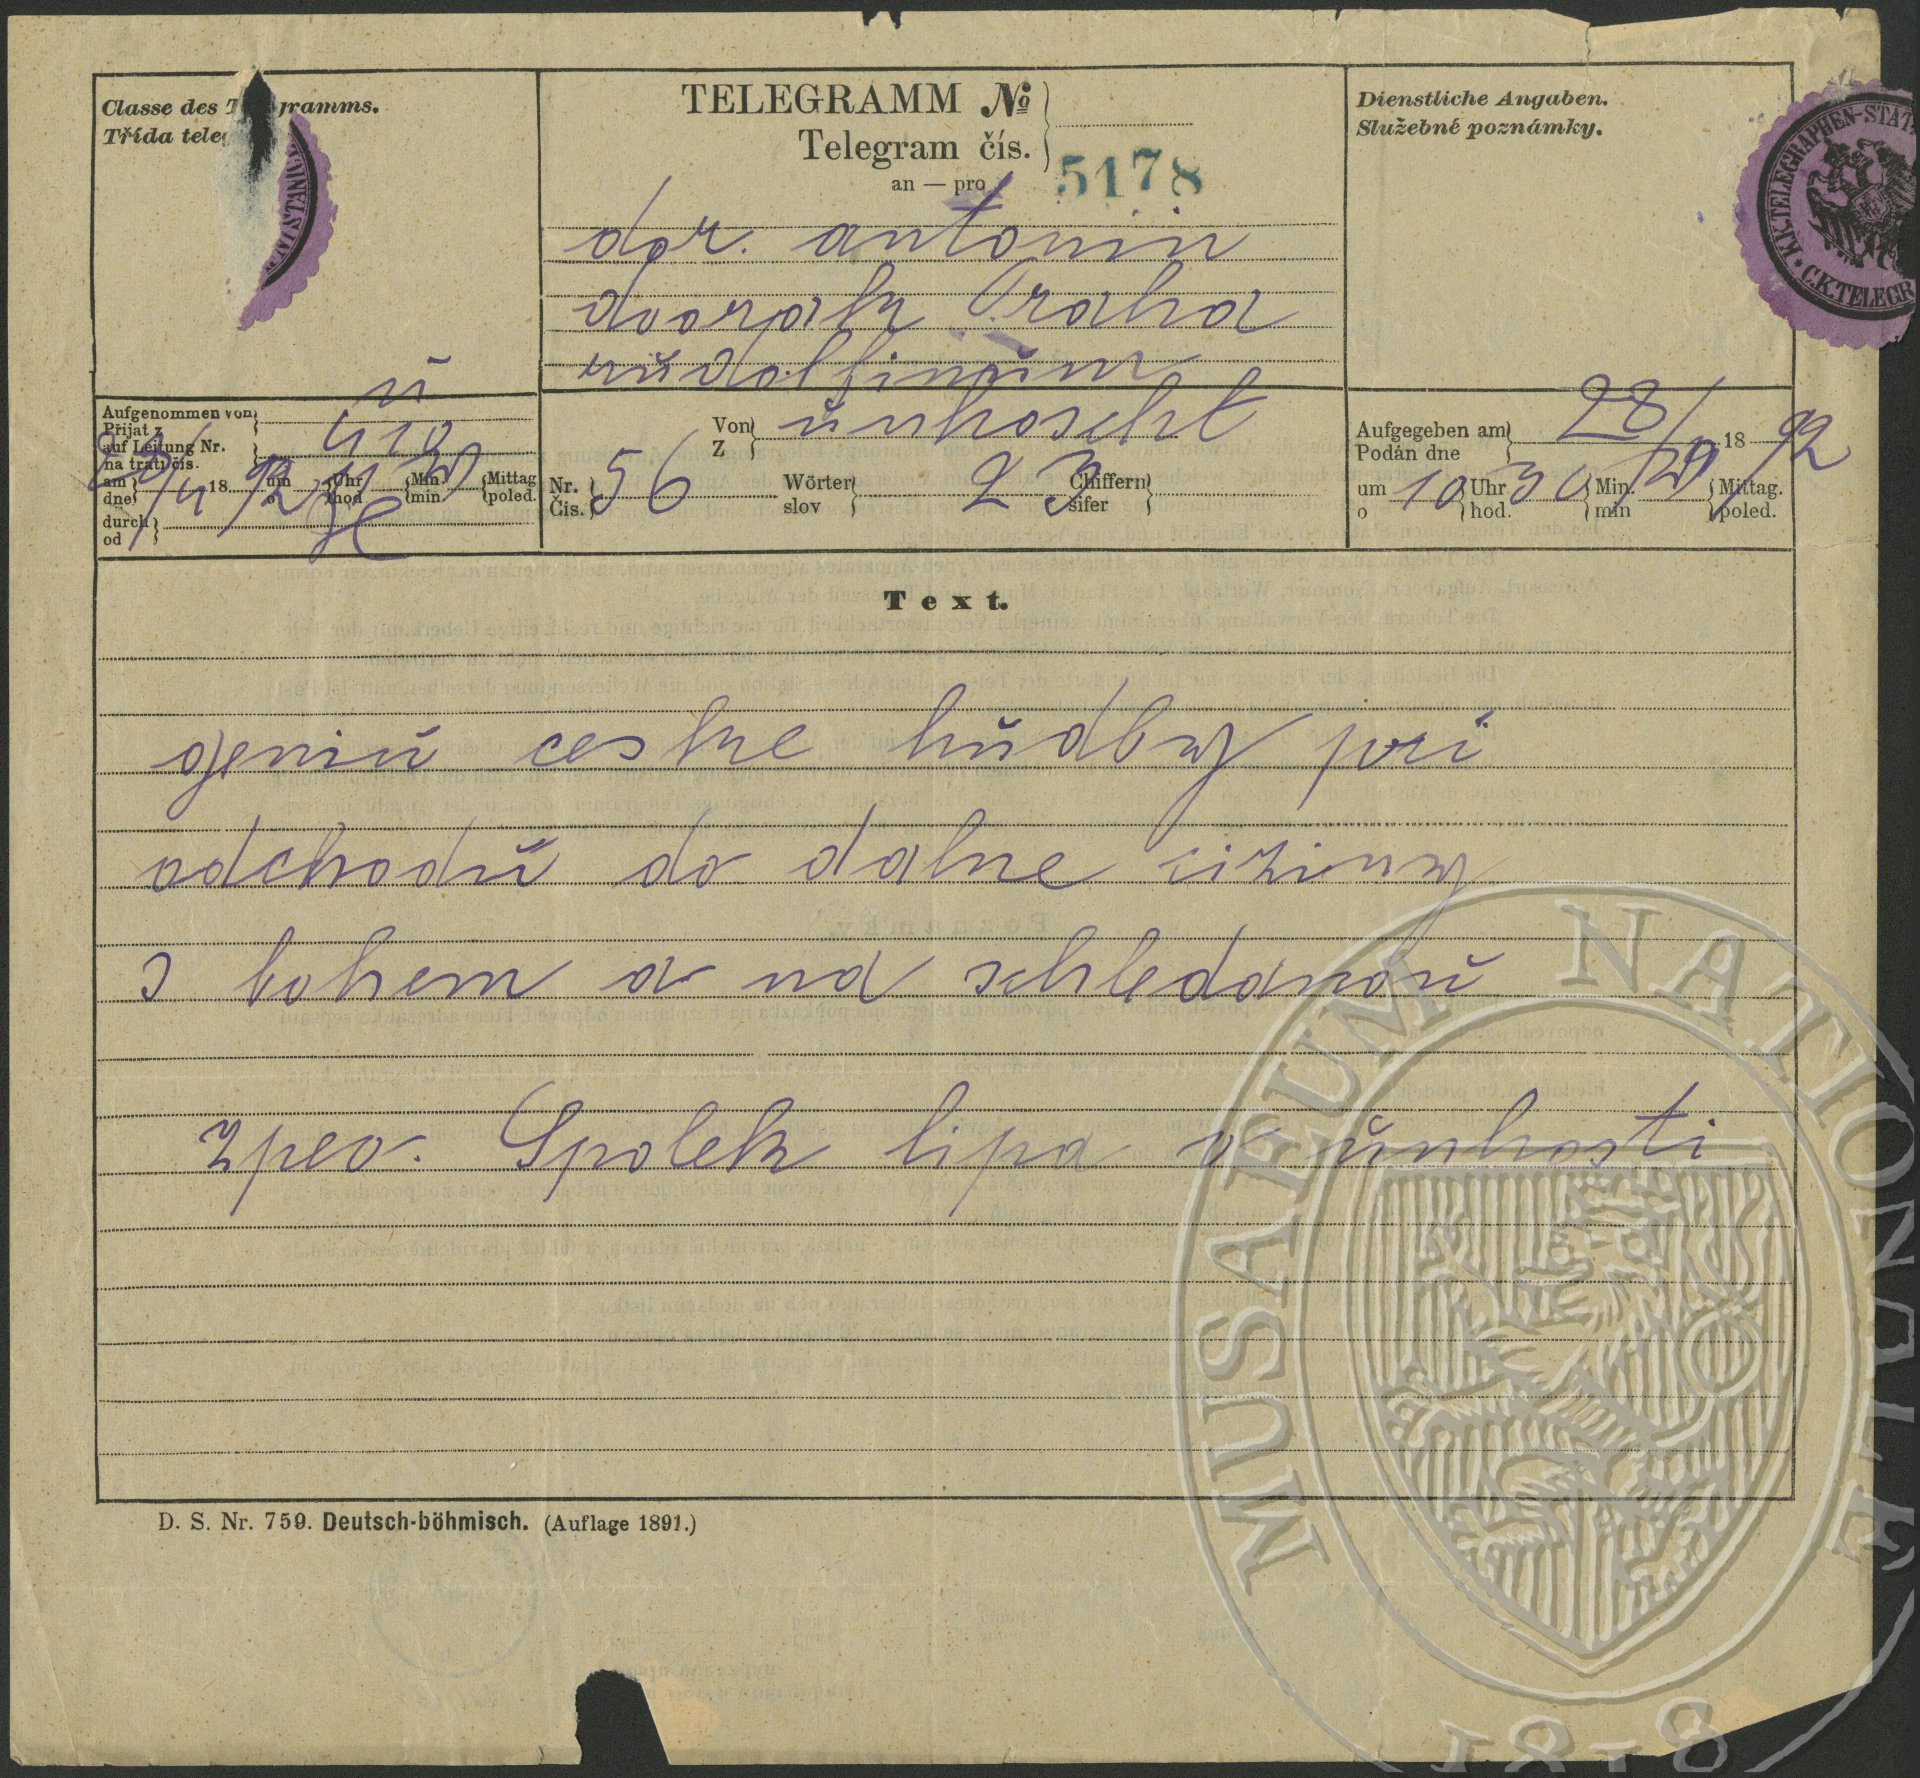 Classe des T gramms.
Třída teleg
TELEGRAMM №
Telegram čís.
5178
an — pro
Dienstliche Angaben.
Služebné poznámky.
K.K.TELEGRAPHEN-STAT
C.K.TELEGR
dor. antonin
dvorak Praha
rudolfinum
Aufgenommen von
Přijat z
auf Leitung Nr.
na trati čís.
am dne 18 92 um o Uhr hod Min. min. Mittag poled.
durch
od
Von
Z
unhoscht
Nr.
Čís.
56
Wörter
slov
23
Chiffern
šifer
Aufgegeben am
Podán dne
28/ 18 92
um
o
10 Uhr
hod.
30 Min.
min
Mittag.
poled.
Text.
geniu ceske hudby pri
odchodu do dalne ciziny
s bohem a na schledanou
zpev. Spolek lipa v unhosti
D. S. Nr. 759. Deutsch-böhmisch. (Auflage 1891.)
MUSAEUM NATIONALE
1818